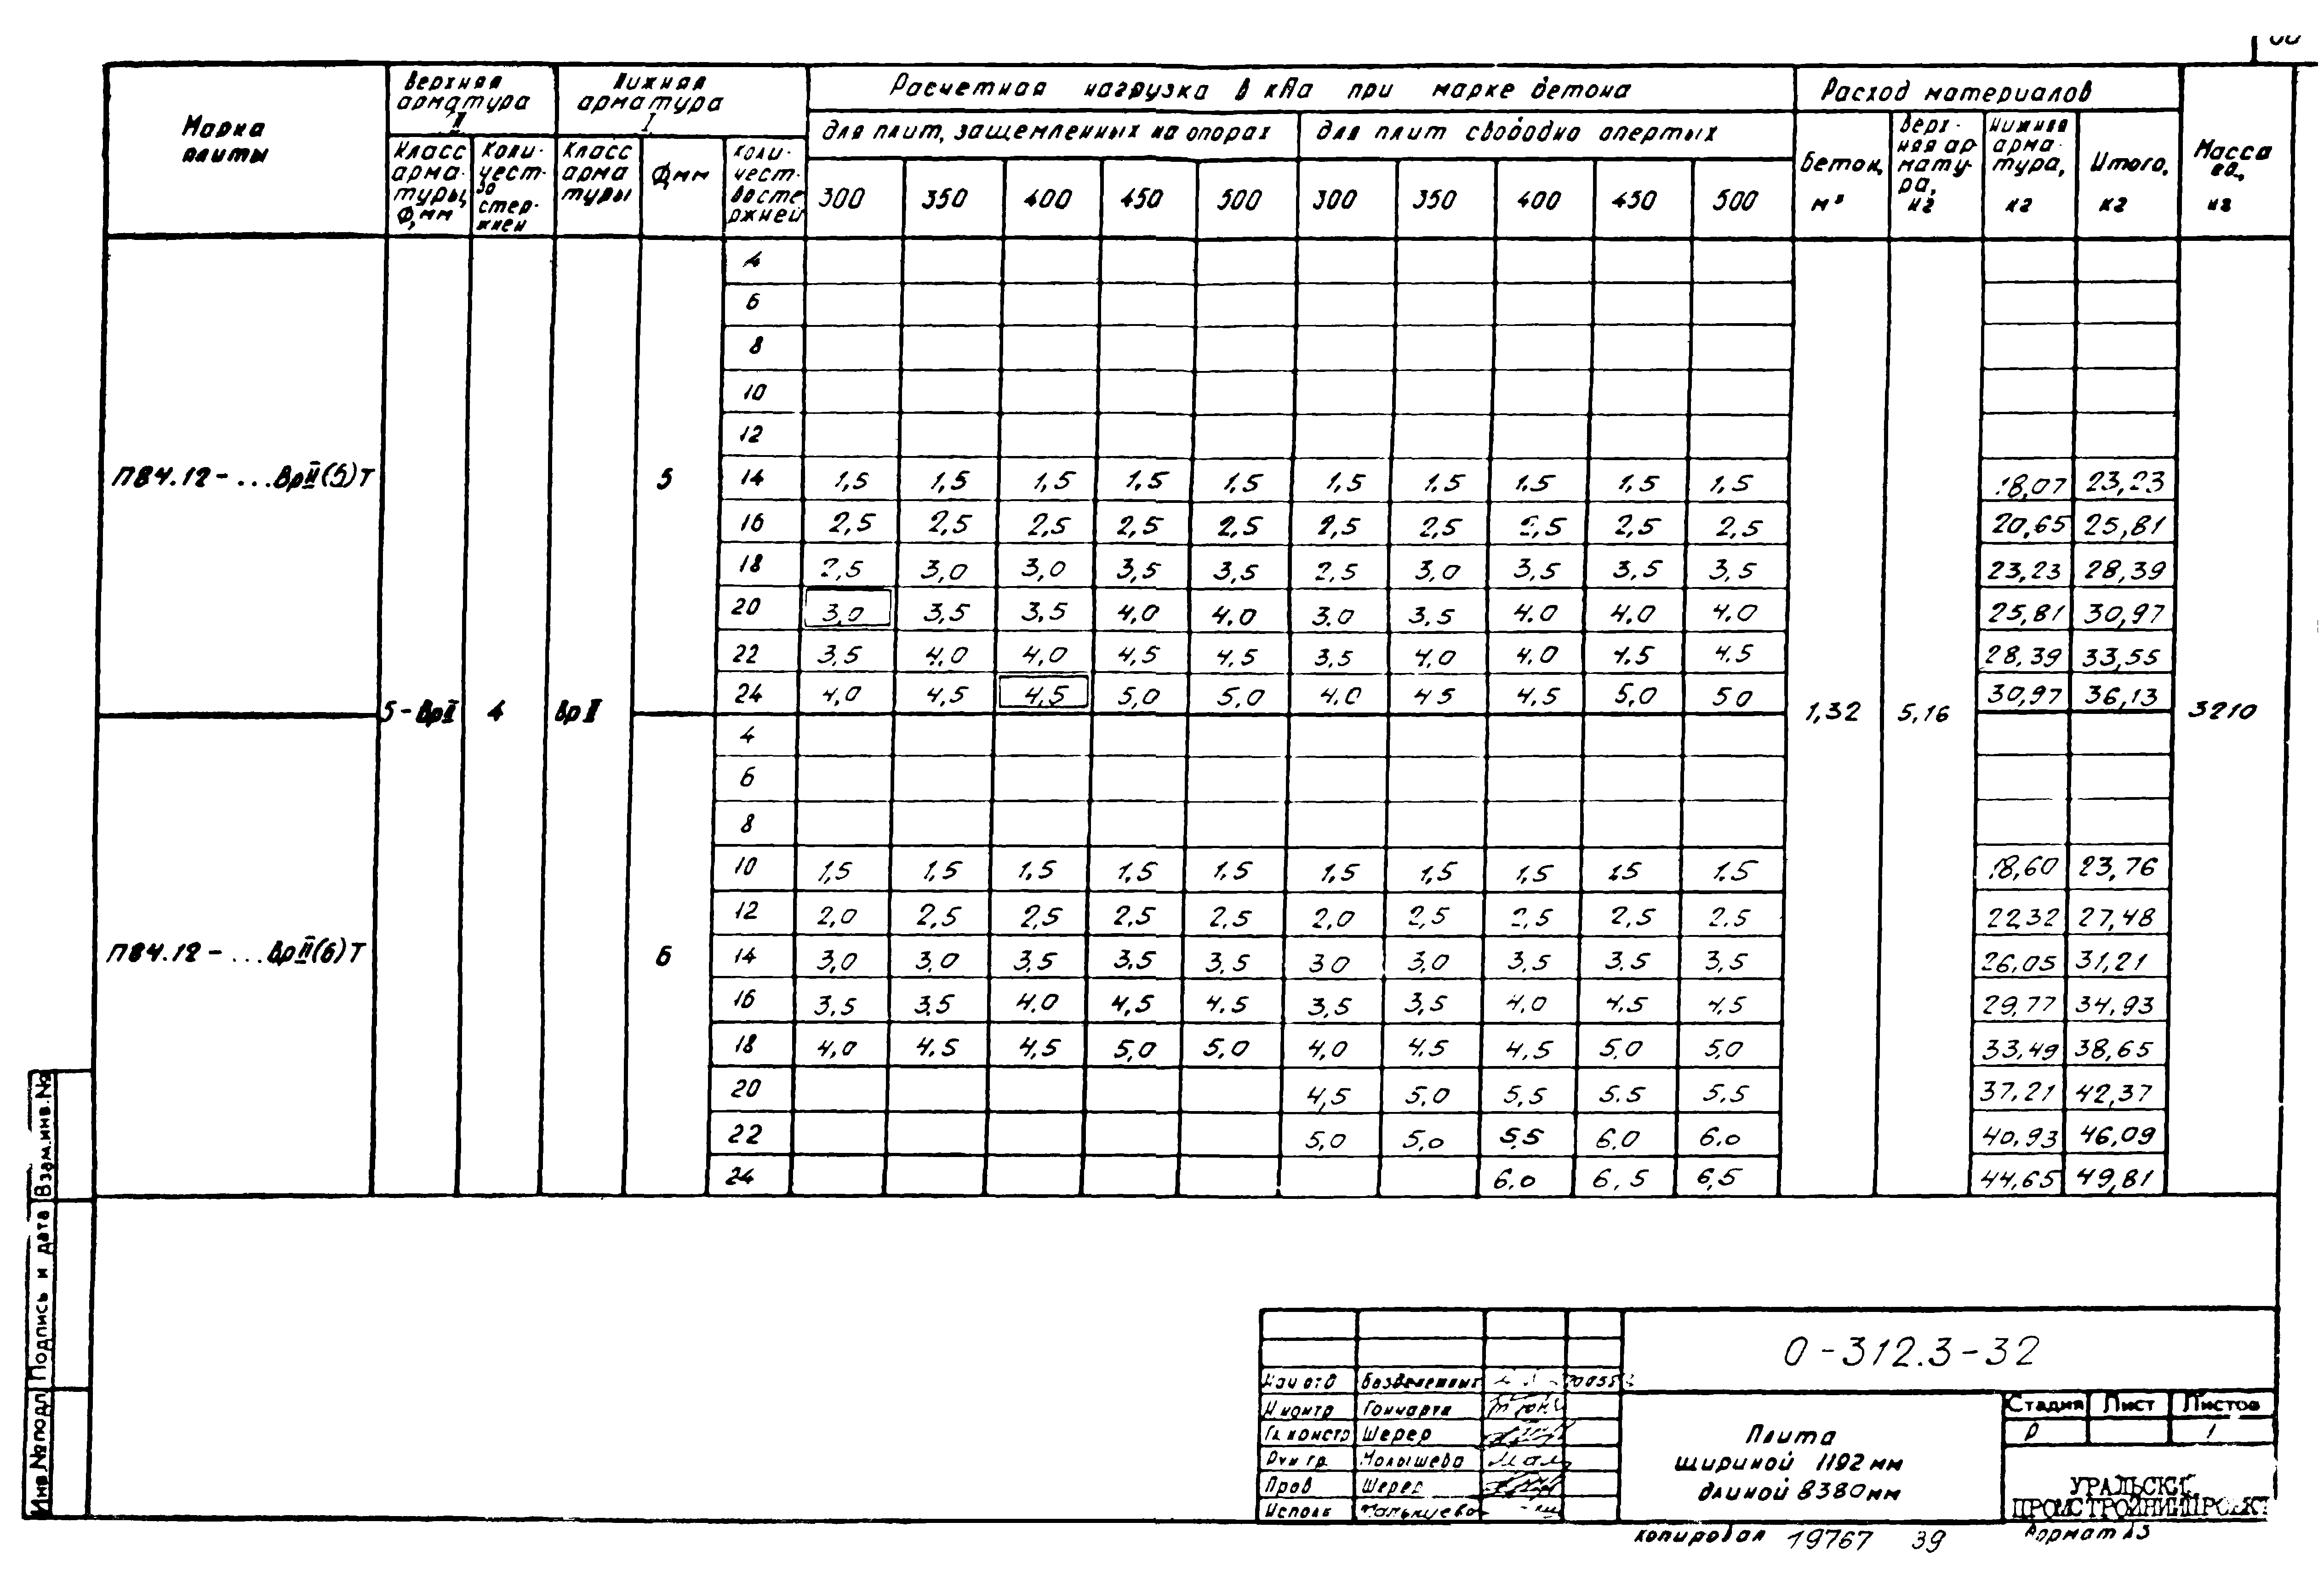 Марка плиты
Верхняя арматура II
Нижняя арматура I
Расчетная нагрузка в кПа при марке бетона
Расход материалов
Масса ед., кг
для плит, защемленных на опорах
для плит свободно опертых
Класс арматуры, Ф, мм
Количество стержней
Класс арматуры
Ф, мм
Количество стержней
300 350 400 450 500 300 350 400 450 500
Бетон, м³
Верхняя арматура, кг
Нижняя арматура, кг
Итого, кг
4
6
8
10
12
П84.12-...ВрII(5)Т 5
14 1,5 1,5 1,5 1,5 1,5 1,5 1,5 1,5 1,5 1,5 18,07 23,23
16 2,5 2,5 2,5 2,5 2,5 2,5 2,5 2,5 2,5 2,5 20,65 25,81
18 2,5 3,0 3,0 3,5 3,5 2,5 3,0 3,5 3,5 3,5 23,23 28,39
20 3,0 3,5 3,5 4,0 4,0 3,0 3,5 4,0 4,0 4,0 25,81 30,97
22 3,5 4,0 4,0 4,5 4,5 3,5 4,0 4,0 4,5 4,5 28,39 33,55
24 4,0 4,5 4,5 5,0 5,0 4,0 4,5 4,5 5,0 5,0 30,97 36,13
5-ВрII 4 ВрII 1,32 5,16 3210
4
6
8
10 1,5 1,5 1,5 1,5 1,5 1,5 1,5 1,5 1,5 1,5 18,60 23,76
12 2,0 2,5 2,5 2,5 2,5 2,0 2,5 2,5 2,5 2,5 22,32 27,48
П84.12-...ВрII(6)Т 6
14 3,0 3,0 3,5 3,5 3,5 3,0 3,0 3,5 3,5 3,5 26,05 31,21
16 3,5 3,5 4,0 4,5 4,5 3,5 3,5 4,0 4,5 4,5 29,77 34,93
18 4,0 4,5 4,5 5,0 5,0 4,0 4,5 4,5 5,0 5,0 33,49 38,65
20 4,5 5,0 5,5 5,5 5,5 37,21 42,37
22 5,0 5,0 5,5 6,0 6,0 40,93 46,09
24 6,0 6,5 6,5 44,65 49,81
Взам.инв.№
Подпись и дата
Инв.№подл
О-312.3-32
Нач отд
Н контр Гончарта
Гл констр Шерер
Рук гр. Малышева
Пров Шерер
Исполн
Плита
шириной 1192мм
длиной 8380мм
Стадия Лист Листов
Р 1
УРАЛЬСКИЙ
ПРОМСТРОЙНИИПРОЕКТ
Копировал 19767 39
Формат А3